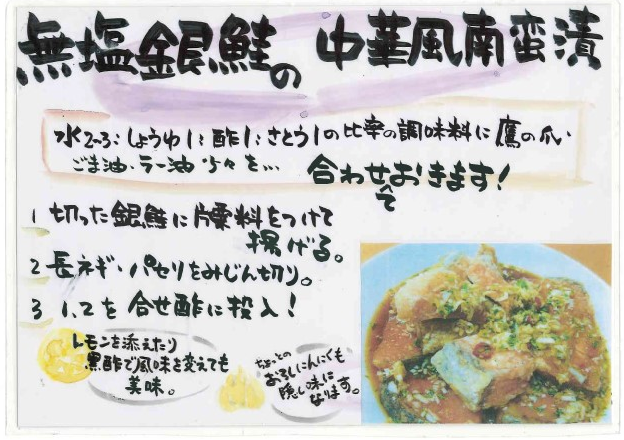 無塩銀鮭の 中華風南蛮漬
水2~3:しょうゆ1:酢1:さとう1の比率の調味料に鷹の爪・
ごま油・ラー油 少々を…
合わせておきます!
1 切った銀鮭に片栗粉をつけて
揚げる。
2 長ネギ・パセリをみじん切り。
3 1,2を合せ酢に投入!
レモンを添えたり
黒酢で風味を変えても
美味。
ちょっとの
おろしにんにくも
隠し味に
なります。